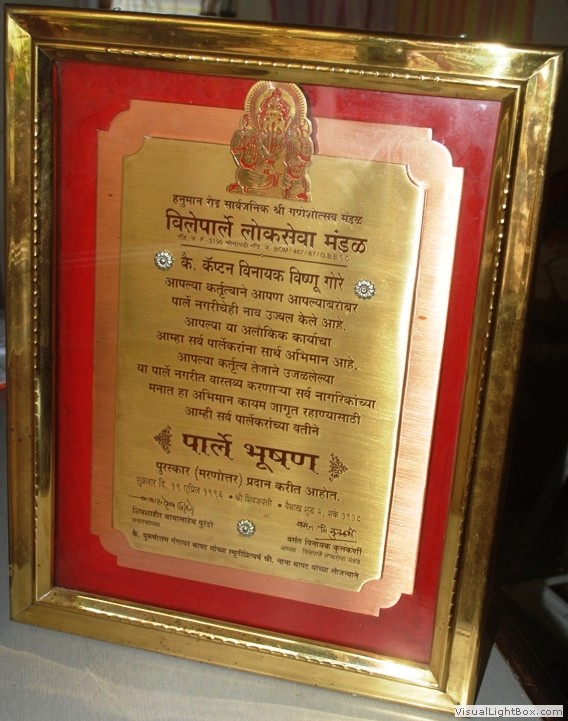 हनुमान रोड सार्वजनिक श्री गणेशोत्सव मंडळ
विलेपार्ले लोकसेवा मंडळ
कै. कॅप्टन विनायक विष्णू गोरे
आपल्या कर्तृत्वाने आपण आपल्याबरोबर
पार्ले नगरीचेही नाव उज्वल केले आहे.
आपल्या या अलौकिक कार्याचा
आम्हा सर्व पार्लेकरांना सार्थ अभिमान आहे.
आपल्या कर्तृत्व तेजाने उजळलेल्या
या पार्ले नगरीत वास्तव्य करणाऱ्या सर्व नागरिकांच्या
मनात हा अभिमान कायम जागृत रहाण्यासाठी
आम्ही सर्व पार्लेकरांच्या वतीने
पार्ले भूषण
पुरस्कार (मरणोत्तर) प्रदान करीत आहोत.
शुक्रवार दि. १९ एप्रिल १९९६ • श्री शिवजयंती • वैशाख शुद्ध २, शके १९१८
शिवशाहीर बाबासाहेब पुरंदरे
वसंत विनायक कुलकर्णी
अध्यक्ष विलेपार्ले लोकसेवा मंडळ
कै. पुरुषोत्तम गंगाधर बापट यांच्या स्मृतीप्रित्यर्थ श्री. नाना बापट यांच्या सौजन्याने
VisualLightBox.com